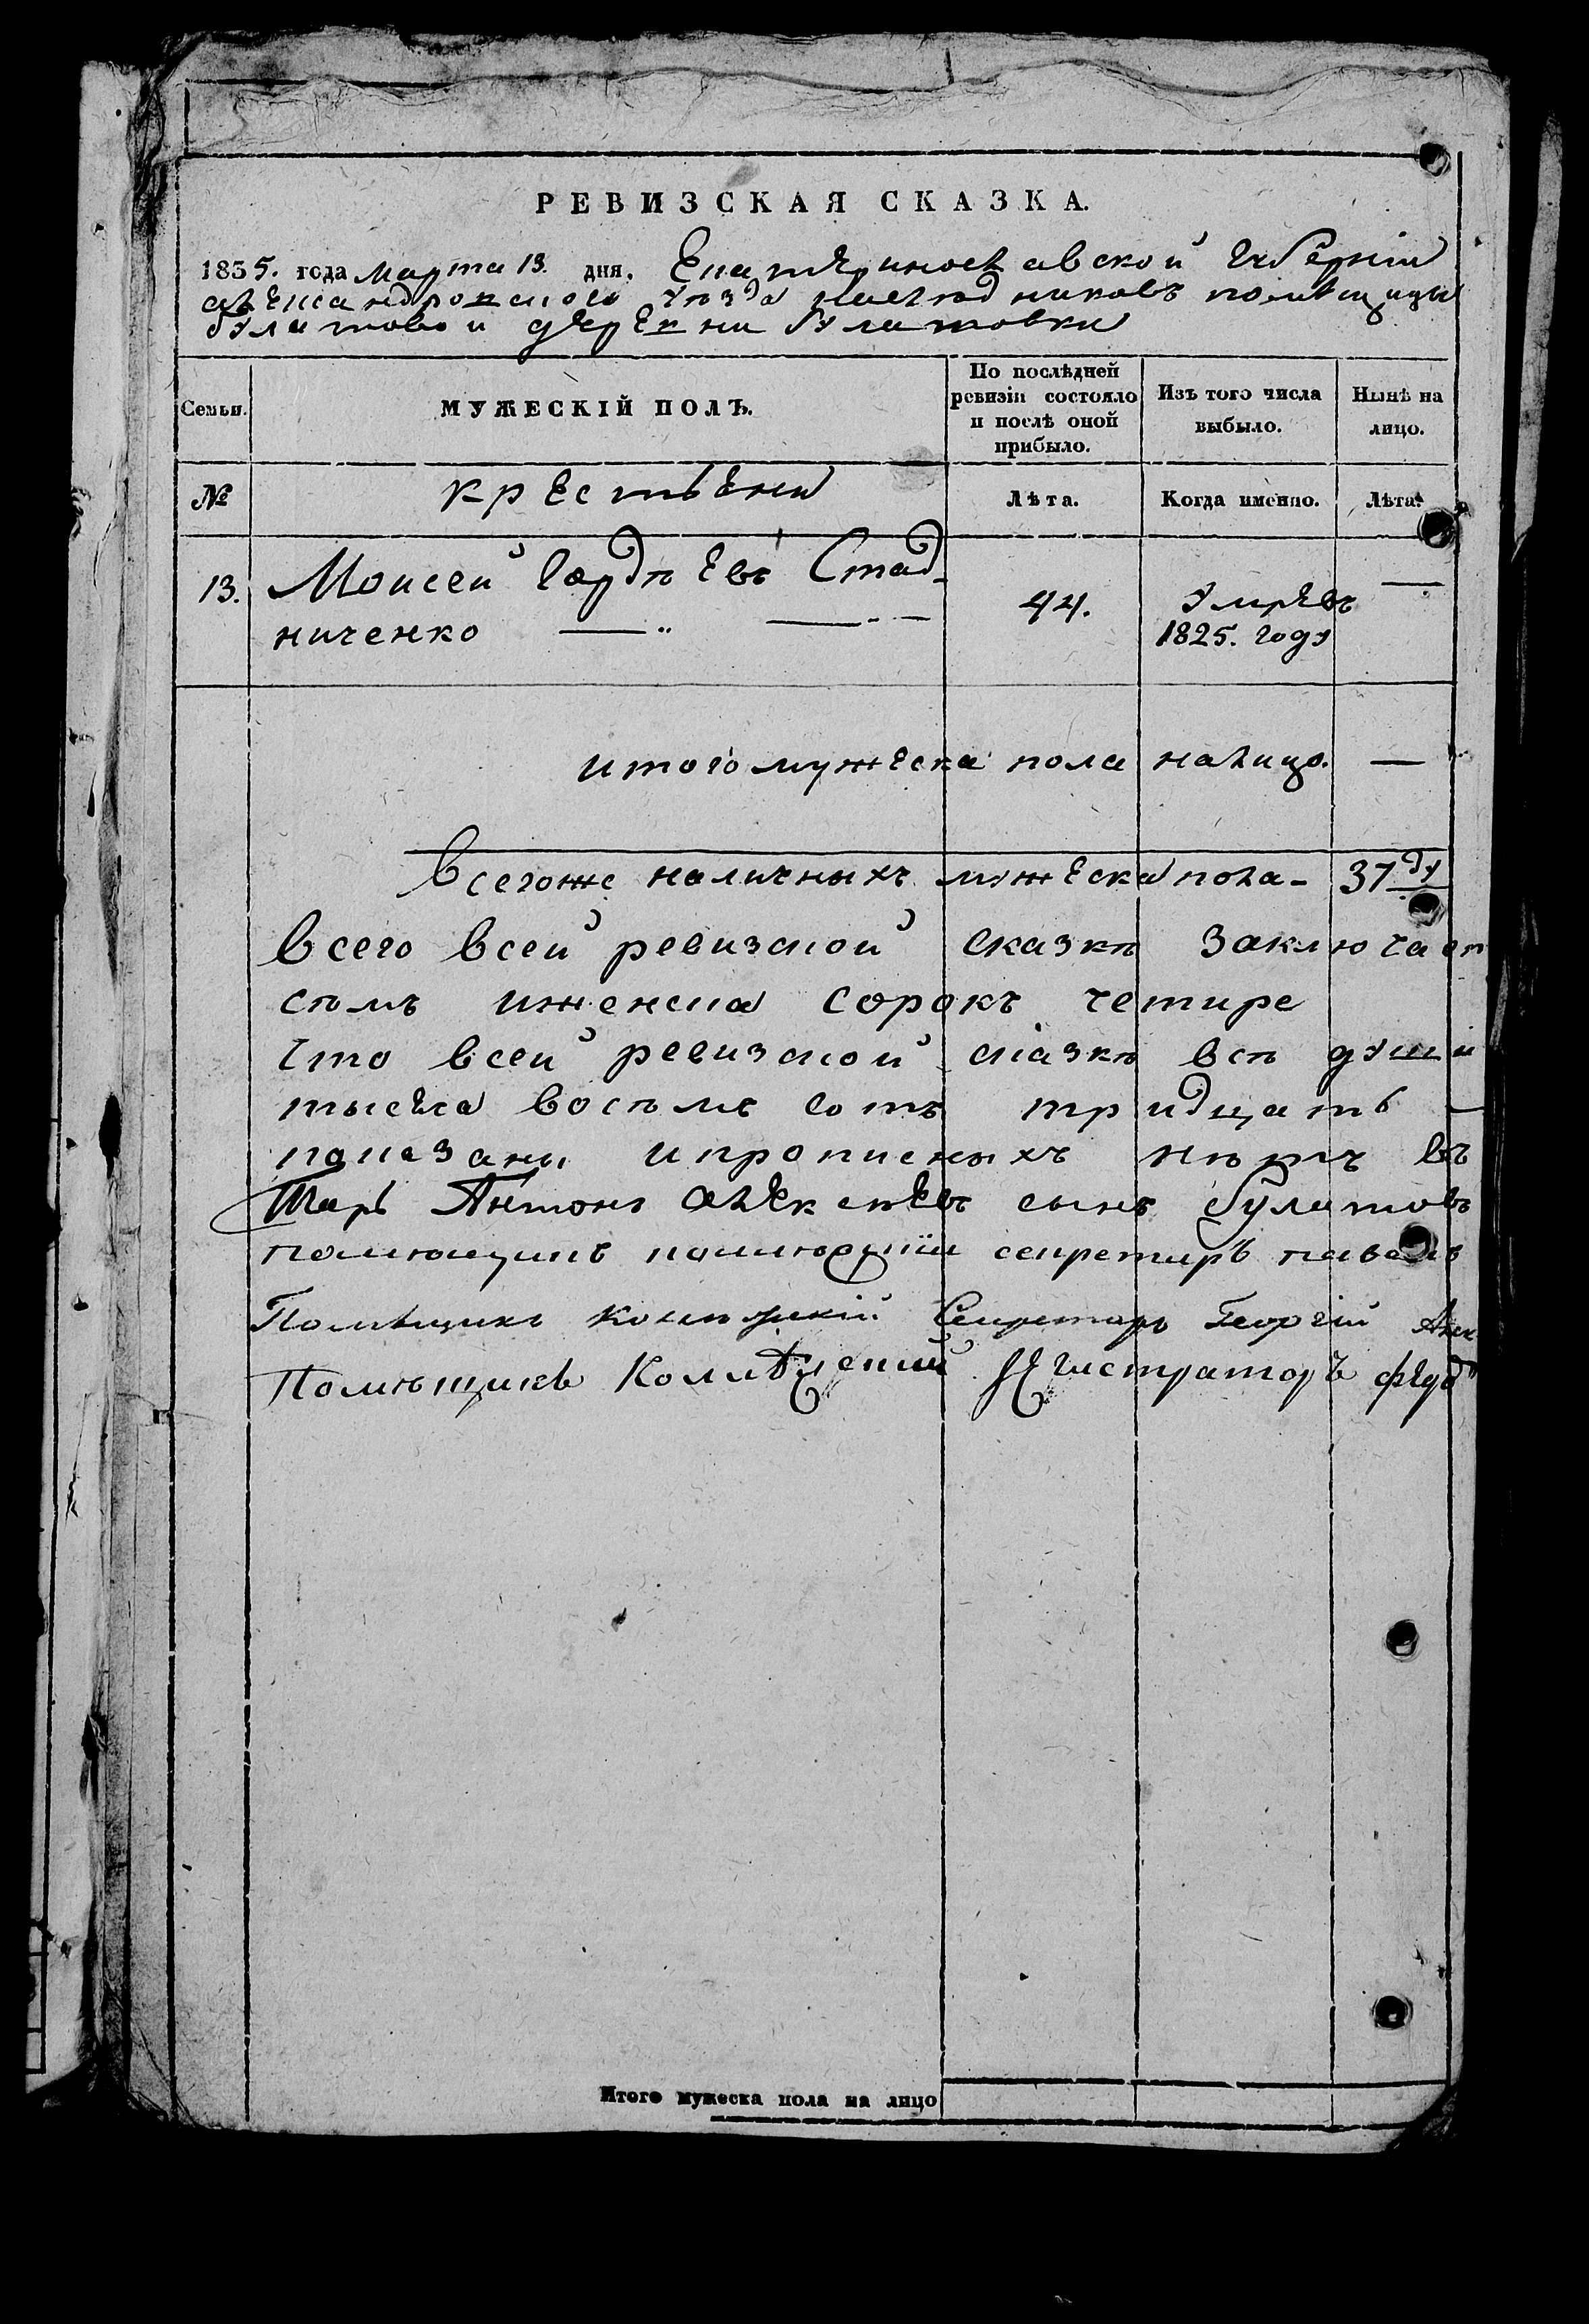 РЕВИЗСКАЯ СКАЗКА.
1835. года марта 13. дня. Екатериновлавской губернии
александровского уезда наследниковъ помѣщицы
булатовой деревни булатовки
Семьи.
МУЖЕСКІЙ ПОЛЪ.
По послѣдней ревизіи состояло и послѣ оной прибыло.
Изъ того числа выбыло.
Нынѣ на лицо.
№
крестьяни
Лѣта.
Когда именно.
Лѣта.
13. Моисей Гордѣевъ Стад-
ниченко
44.
Умревъ
1825. году
—
итого мужеска пола налицо. —
Всегоже наличныхъ мужеска пола - 37 ду
Всего всей ревизской сказкѣ заключает
сѣмъ иженска сорокъ четире
Что всей ревизской сказкѣ всѣ души
тысеча восѣмь сотъ тридцать —
показаны ипрописныхъ нѣтъ въ
тарь Антонъ Алексѣевъ сынъ булатовъ
секретирь павелъ
Помѣщикъ Колѣжскій Секретарь Георгій Алек
Помѣщикъ Колѣжский Регистраторъ Фед
Итого мужеска пола на лицо